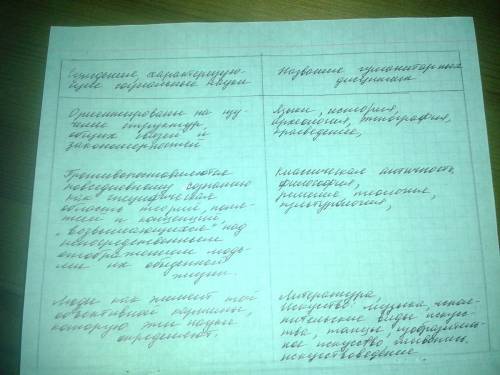 Суждение, характеризую-
щие социальные науки
Название гуманитарных
дисциплин
Ориентирование на изу-
чение структур,
общих связей и
закономерностей
Языки, история,
археология, этнография,
правоведение,
Противопоставляются
повседневному сознанию
как специфическая
область теорий, поня-
тий и концепций,
"возвышающихся" над
непосредственным
отображением людь-
ми их обыденной
жизни.
Классическая античность,
философия,
религия, теология,
культурология,
Люди как элемент той
объективной картины,
которую эти науки
определяют.
Литература,
Искусство: музыка, испол-
нительские виды искус-
ства, танцы, изобразитель-
ное искусство живопись,
искусствоведение